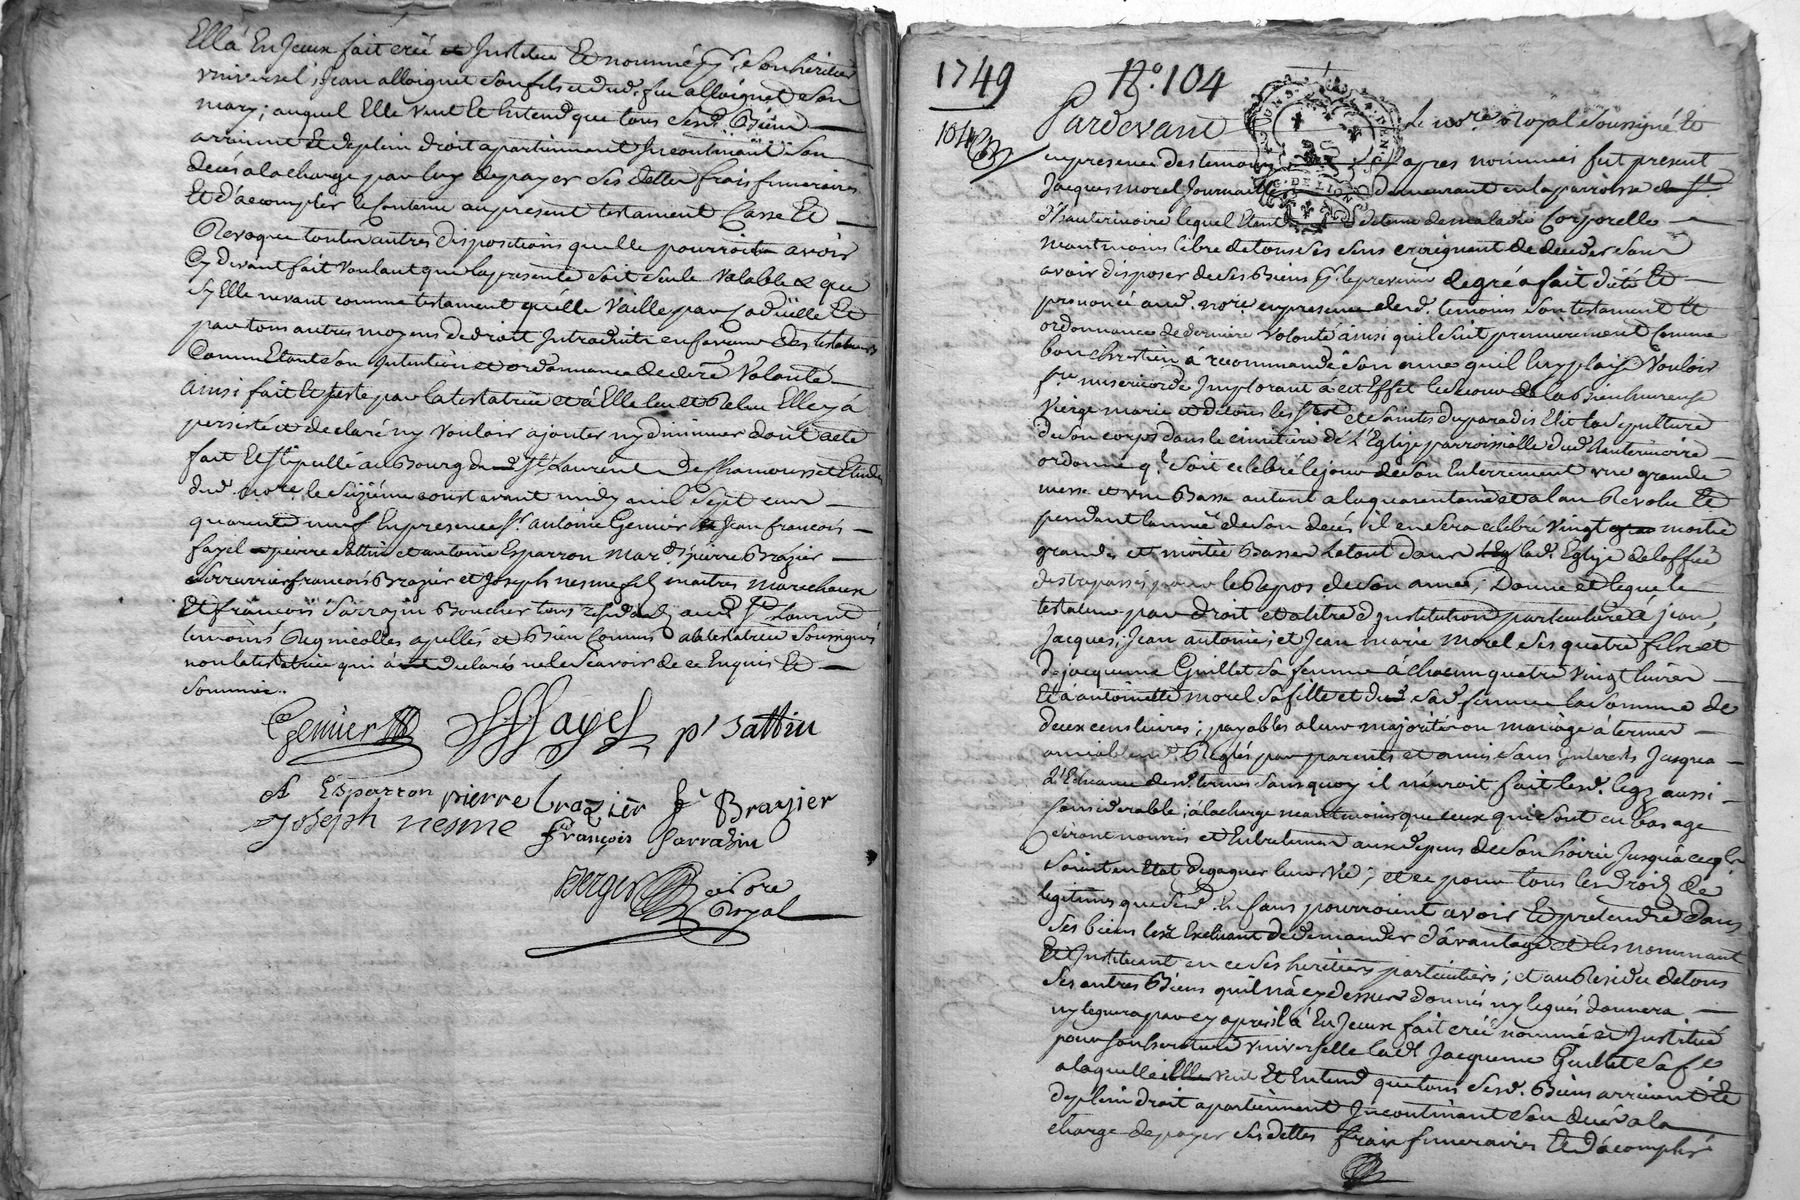 Ella En Jceux fait créé et Institué Et nommé pr. Son héritier
universel; Jean alloignet Son fils et dud. feu alloignet Son
mary; auquel Elle veut Et Entend que tous Sesd. Biens
arrivent Et de plein droit apartiennent Jncontinant Son
decés a la charge par luy de payer Ses dettes frais funeraires
Et d'acomplir le Contenu au present testament Casse Et
Revoque toutes autres dispositions quelle pourroit avoir
Cy devant fait Voulant que la presente Soit Seule Valable & que
Sy Elle ne vaut comme testament qu'elle Vaille par Codicille Et
par tous autres moyens de droit Introduits en faveur des testateurs
Comm Etant Son Intention et ordonnance de derre. Volonté
Ainsi fait Et testé par la testatrice et à Elle leu et Releu Elle y à
persisté et declaré ny Vouloir ajouter ny diminuer dont acte
fait Et Stipullé au Bourg de St. Laurent De Chamousset Etude
dud. nore. le Sizieme aoust avant midy mil Sept cent
quarente neuf En presence Sr. antoine Gemier Jean francois
fayel pierre Sattin et antoine Esparron mards. pierre Brazier
Serrurier francois Brazier et Joseph nesme fils maitres marechaux
Et francois Sarrazin Boucher tous residants aud. St. Laurent
temoins Regnicolles apellés et Bien Connus a la testatrice Soussignés
non la testatrice qui à declaré ne le Scavoir de ce Enquis Et
Sommée..
Gemier Fayel p. Sattin
A Esparron pierre brazier fr. Brazier
Joseph nesme françois Sarrazin
Berger nore
Royal
1749 N°. 104
104
Pardevant Le nore. Royal Soussigné Et
en presence des temoins cy apres nommés fut present
Jacques morel Journallier demeurant en la parroisse de St.
d'hauterivoire lequel Etant detenu de maladie Corporelle
neantmoins libre de tous Ses Sens craignant de deceder Sans
avoir disposer de Ses Biens pr. le prevenir de gré a fait dicté Et
prononcé aud. nore. en presence desd. temoins Son testament Et
ordonnance de derniere Volonté ainsi quil Suit premierement Comme
bon chretien à recommandé Son ame quil luy plaise Vouloir
fre. misericorde Implorant à cet Effet le Secours de la Bienheureuse
Vierge marie et de tous les Sts. et Saintes du paradis Elit la Sepulture
de Son corps dans le cimitière de l'Eglise parroissialle dud. hauterivoire
ordonne q. Soit celebré le jour de Son Enterrement une grande
messe et une Basse autant a la quarentaine et a l'an Revolu Et
pendant l'année de Son decés il en Sera celebré Vingt moitié
grandes et moitié Basses le tout dans lad. Eglise de loffice
des trepassés pour le Repos de Son ame; Donne et legue le
testateur par droit et a titre d'Institution particuliere a jean,
Jacques; jean antoine; et Jean marie morel Ses quatre fils et
de jacqueme Guillet Sa femme à chacun quatre Vingt livres
Et à antoinette morel Sa fille et de Sad. femme la Somme de
deux cens livres; payables a leur majorité ou mariage à termes
amiablemt. Reglés par parents et amis Sans Interests Jusqua
L'Echeance desd. termes Sans quoy il n'auroit fait lesd. legs aussi
Considerable; à la charge neantmoins que ceux qui Sont en bas age
Seront nourris et Entretenus aux depens de Son hoirie Jusqu'à ce qu'ils
Soient en Etat de gagner leur Vie; et ce pour tous les droits de
legitimes que Sesd. Enfans pourroient avoir Et pretendre dans
Ses biens les Excluant de demander d'avantage et les nommant
Et Instituant en ce Ses heritiers particuliers; et au Residu de tous
Ses autres Biens quil n'a cy dessus donnés ny legués donnera
ny leguera par cy apres il à En Jceux fait créé nommé et Institué
pour Son heritiere Universelle lad. Jacqueme Guillet Sa fe.
a laquelle il veut Et Entend que tous Sesd. Biens arrivent Et
de plein droit apartiennent Jncontinant Son decés a la
charge de payer Ses dettes frais funeraires Et d'acomplir